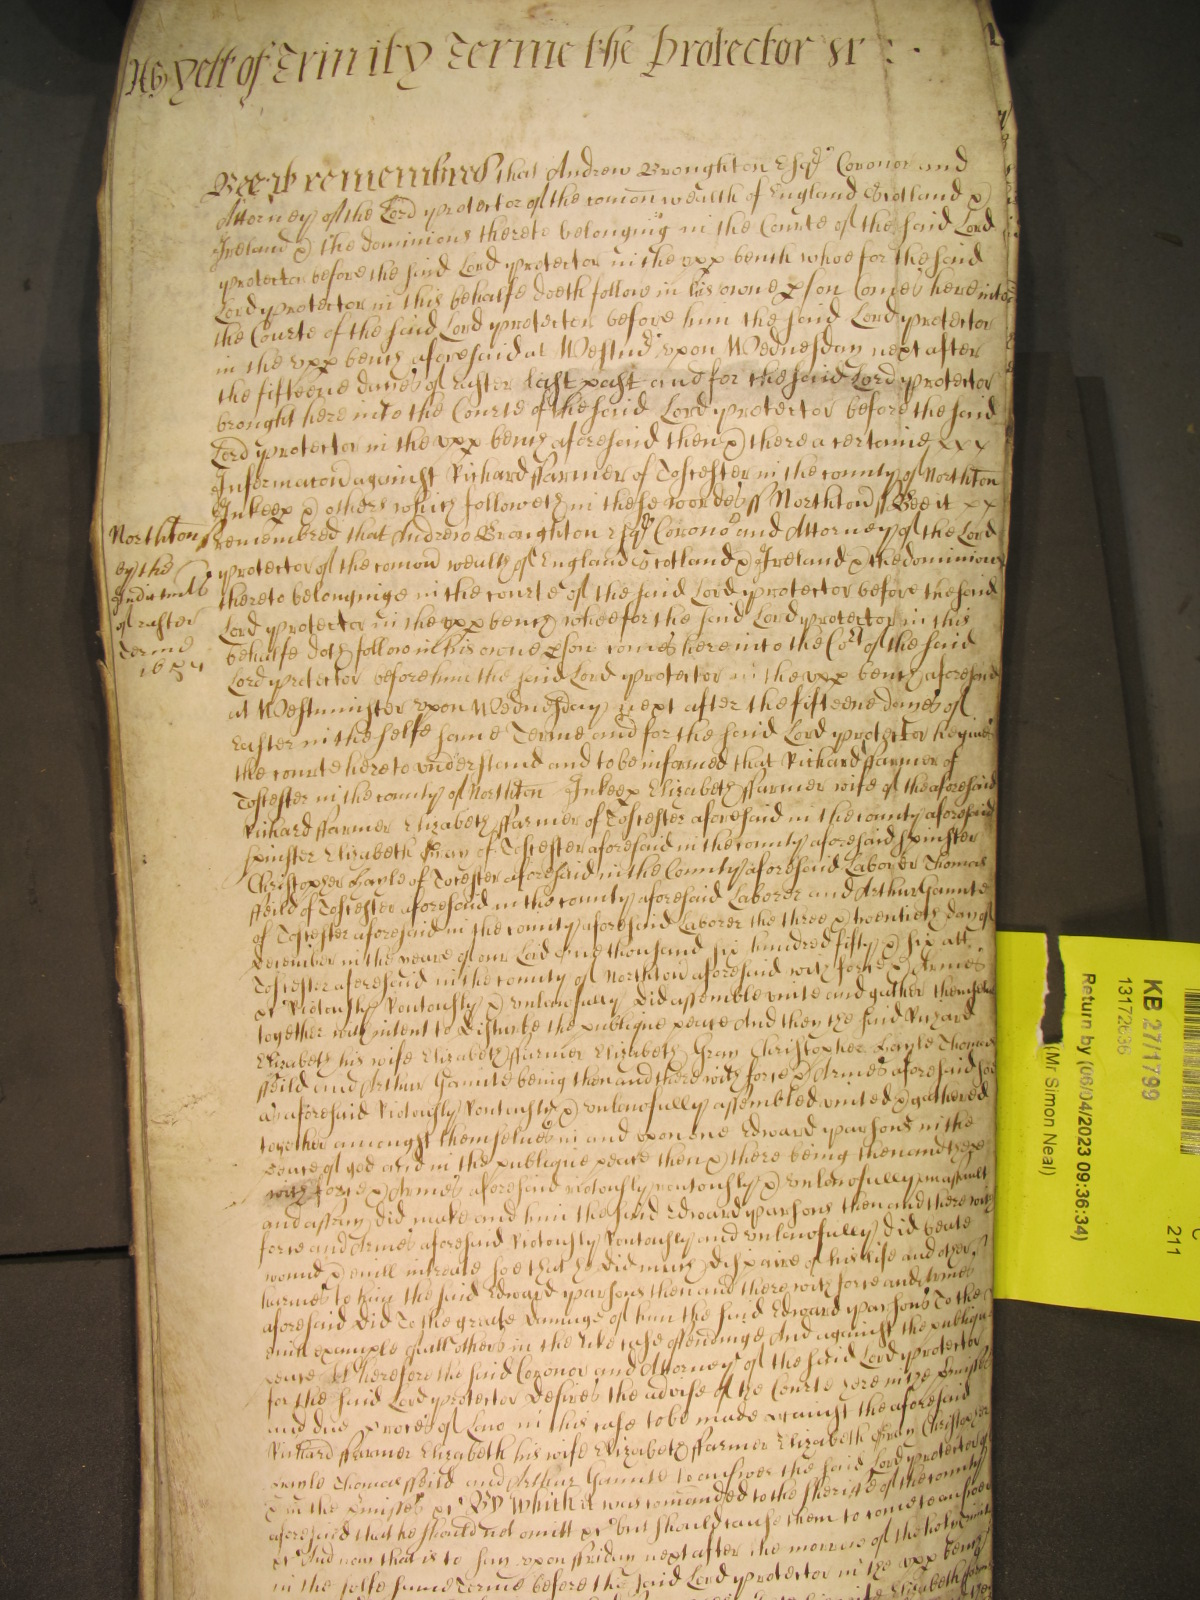 As yett of Trinity Terme the Protector &c :
Bee it remembred that Andrew Broughton Esqr Coronor and
Attorney of the Lord protector of the comon wealth of England Scotland &
Ireland & the dominions thereto belonging in the Courte of the said Lord
protector before the said Lord protector in the upp bench whoe for the said
Lord protector in this behalfe doeth follow in his owne pson Comes here into
the Courte of the said Lord protector before him the said Lord protector
in the upp bench aforesaid at Westmr upon Wednesday next after
the fifteene dayes of easter last past and for the said Lord protector
brought here into the Courte of the said Lord protector before the said
Lord protector in the upp bench aforesaid then & there a certaine xxx
Informacon against Richard ffarmer of Tosester in the county of Northton
Inkeep & others which followeth in these wordes ss Northton ss Bee it xx
Northton
remembred that Andrew Broughton Esqr Corono and Attorney of the Lord
protector of the comon wealth of England Scotland & Ireland & the dominions
thereto belonginge in the courte of the said Lord protector before the said
Lord protector in the upp bench whoe for the said Lord protector in this
behalfe doth follow in his owne pson comes here into the Cort of the said
Lord protector before him the said Lord protector in the upp bench aforesaid
of easter
terme
at Westminster upon Wednesday next after the fifteene dayes of
Easter in the selfe same Terme and for the said Lord protector
the courte here to understand and to be informed that Richard ffarmer of
Tosester in the county of Northton Inkeep Elizabeth ffarmer wife of the aforesaid
Richard ffarmer Elizabeth ffarmer of Tosester aforesaid in the county aforesaid
spinster Elizabeth Gray of Tosester aforesaid in the county aforesaid spinster
Christopher Gayle of Tosester aforesaid in the County aforesaid Laborer Thomas
ffeild of Tosester aforesaid in the county aforesaid Laborer and Arthur Gaunte
of Tosester aforesaid in the county aforesaid Laborer the three & twentieth day of
December in the yeare of our Lord One thousand six hundred fifty & six att
Tosester aforesaid in the county of Northton aforesaid with force & Armes
&c Riotously Routously & unlawfully did assemble unite and gather themselves
together with intent to disturbe the publique peace And they the said Richard
Elizabeth his wife Elizabeth ffarmer Elizabeth Gray Christopher Gayle Thomas
ffeild and Arthur Gaunte being then and there with force & Armes aforesaid soe
as aforesaid Riotously Routously & unlawfully assembled united & gathered
together amongst themselves in and upon one Edward parsons in the
peace of god and in the publique peace then & there being then and there
with force & Armes aforesaid riotously routously & unlawfully an assault
and affray did make and him the said Edward parsons then and there with
force and Armes aforesaid Riotously Routously and unlawfully did beate
wound & evill intreate soe that hee did much dispaire of his life and other
harmes to him the said Edward parsons then and there with force and Armes
aforesaid did To the greate damage of him the said Edward parsons To the
evill example of all others in the like case offendinge And against the publique
peace Wherefore the said Coronor and Attorney of the said Lord protector
for the said Lord protector desires the advise of the Courte here in the pmisses
and due proces of Law in this case to be made against the aforesaid
Richard ffarmer Elizabeth his wife Elizabeth ffarmer Elizabeth Gray Christopher
Gayle Thomas ffeild and Arthur Gaunte to answer the said Lord protector of
& in the pmisses &c By which it was comanded to the sherife of the county
aforesaid that he should not omitt &c but should cause them to come to answer
&c And now that is to say upon ffriday next after the morrow of the holy
in the selfe same Terme before the said Lord protector in the upp bench
KB 27/1799
13172636
Return by (06/04/2023 09:36:34)
(Mr Simon Neal)
C
211